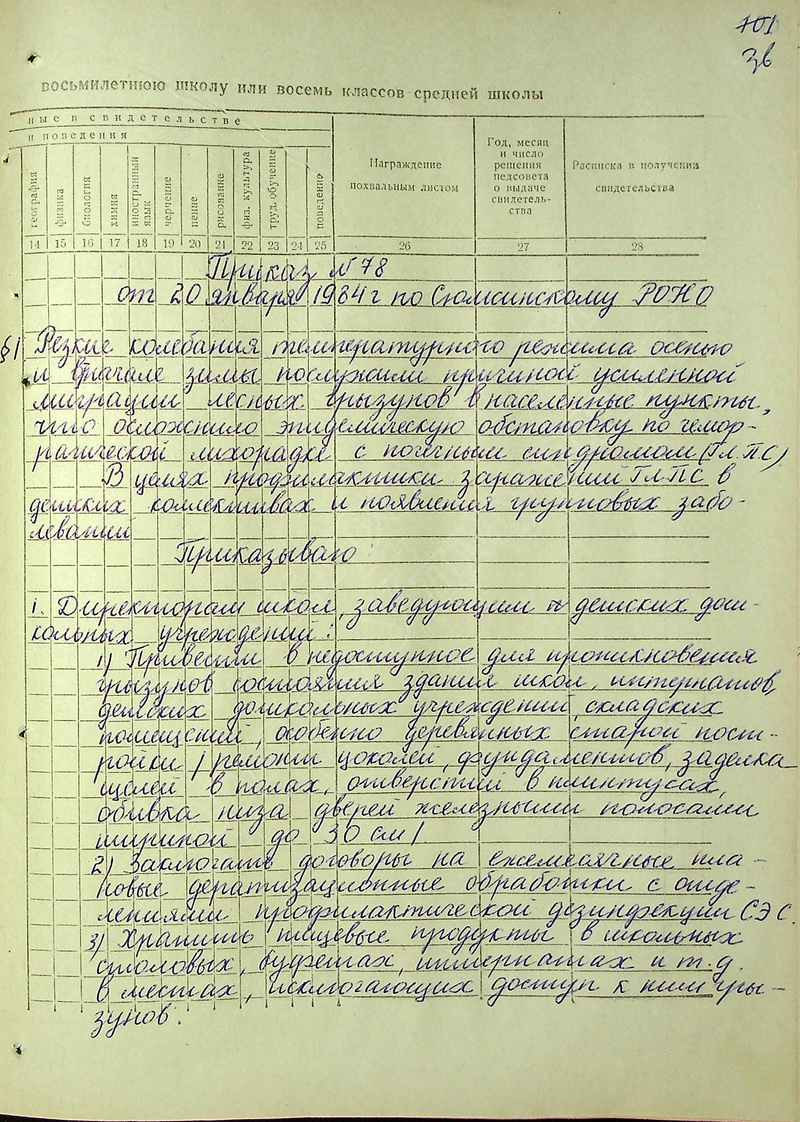 101
38
восьмилетнюю школу или восемь классов средней школы
ные в свидетельстве
и поведения
география
физика
биология
химия
иностранный язык
черчение
пение
рисование
физ. культура
труд. обучение
поведение
Награждение
похвальным листом
Год, месяц
и число
решения
педсовета
о выдаче
свидетель-
ства
Расписка в получении
свидетельства
14 15 16 17 18 19 20 21 22 23 24 25 26 27 28
Приказ N 78
от 20 января 1984 г по Сюмсинскому РОНО
§1 Резкие колебания температурного режима осенью
и вначале зимы послужили причиной усиленной
миграции лесных грызунов в населенные пункты,
что осложнило эпидемическую обстановку по гемор-
рагической лихорадке с почечным синдромом (ГЛПС)
В целях профилактики заражений ГЛПС в
детских коллективах и появления групповых забо-
леваний
Приказываю:
1. Директорам школ, заведующим детских дош-
кольных учреждений:
1) Привести в недоступное для проникновения
грызунов состояния здания школ, интернатов,
детских дошкольных учреждений, складских
помещений, особенно деревянных старой пост-
ройки /ремонт цоколей, фундаментов, заделка
щелей в полах, отверстий в плинтусах,
обивка низа дверей железными полосами
шириной до 30 см/
2) Заключать договоры на ежемесячные пла-
новые дератизационные обработки с отде-
лениями профилактической дезинфекции СЭС.
3) Хранить пищевые продукты в школьных
столовых, буфетах, интернатах и т.д.
в местах, исключающих доступ к ним гры-
зунов.